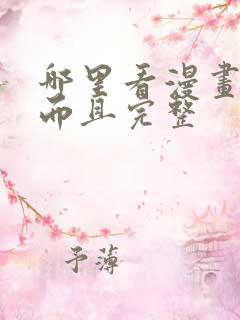 哪里看漫畫
而且完整
予薄